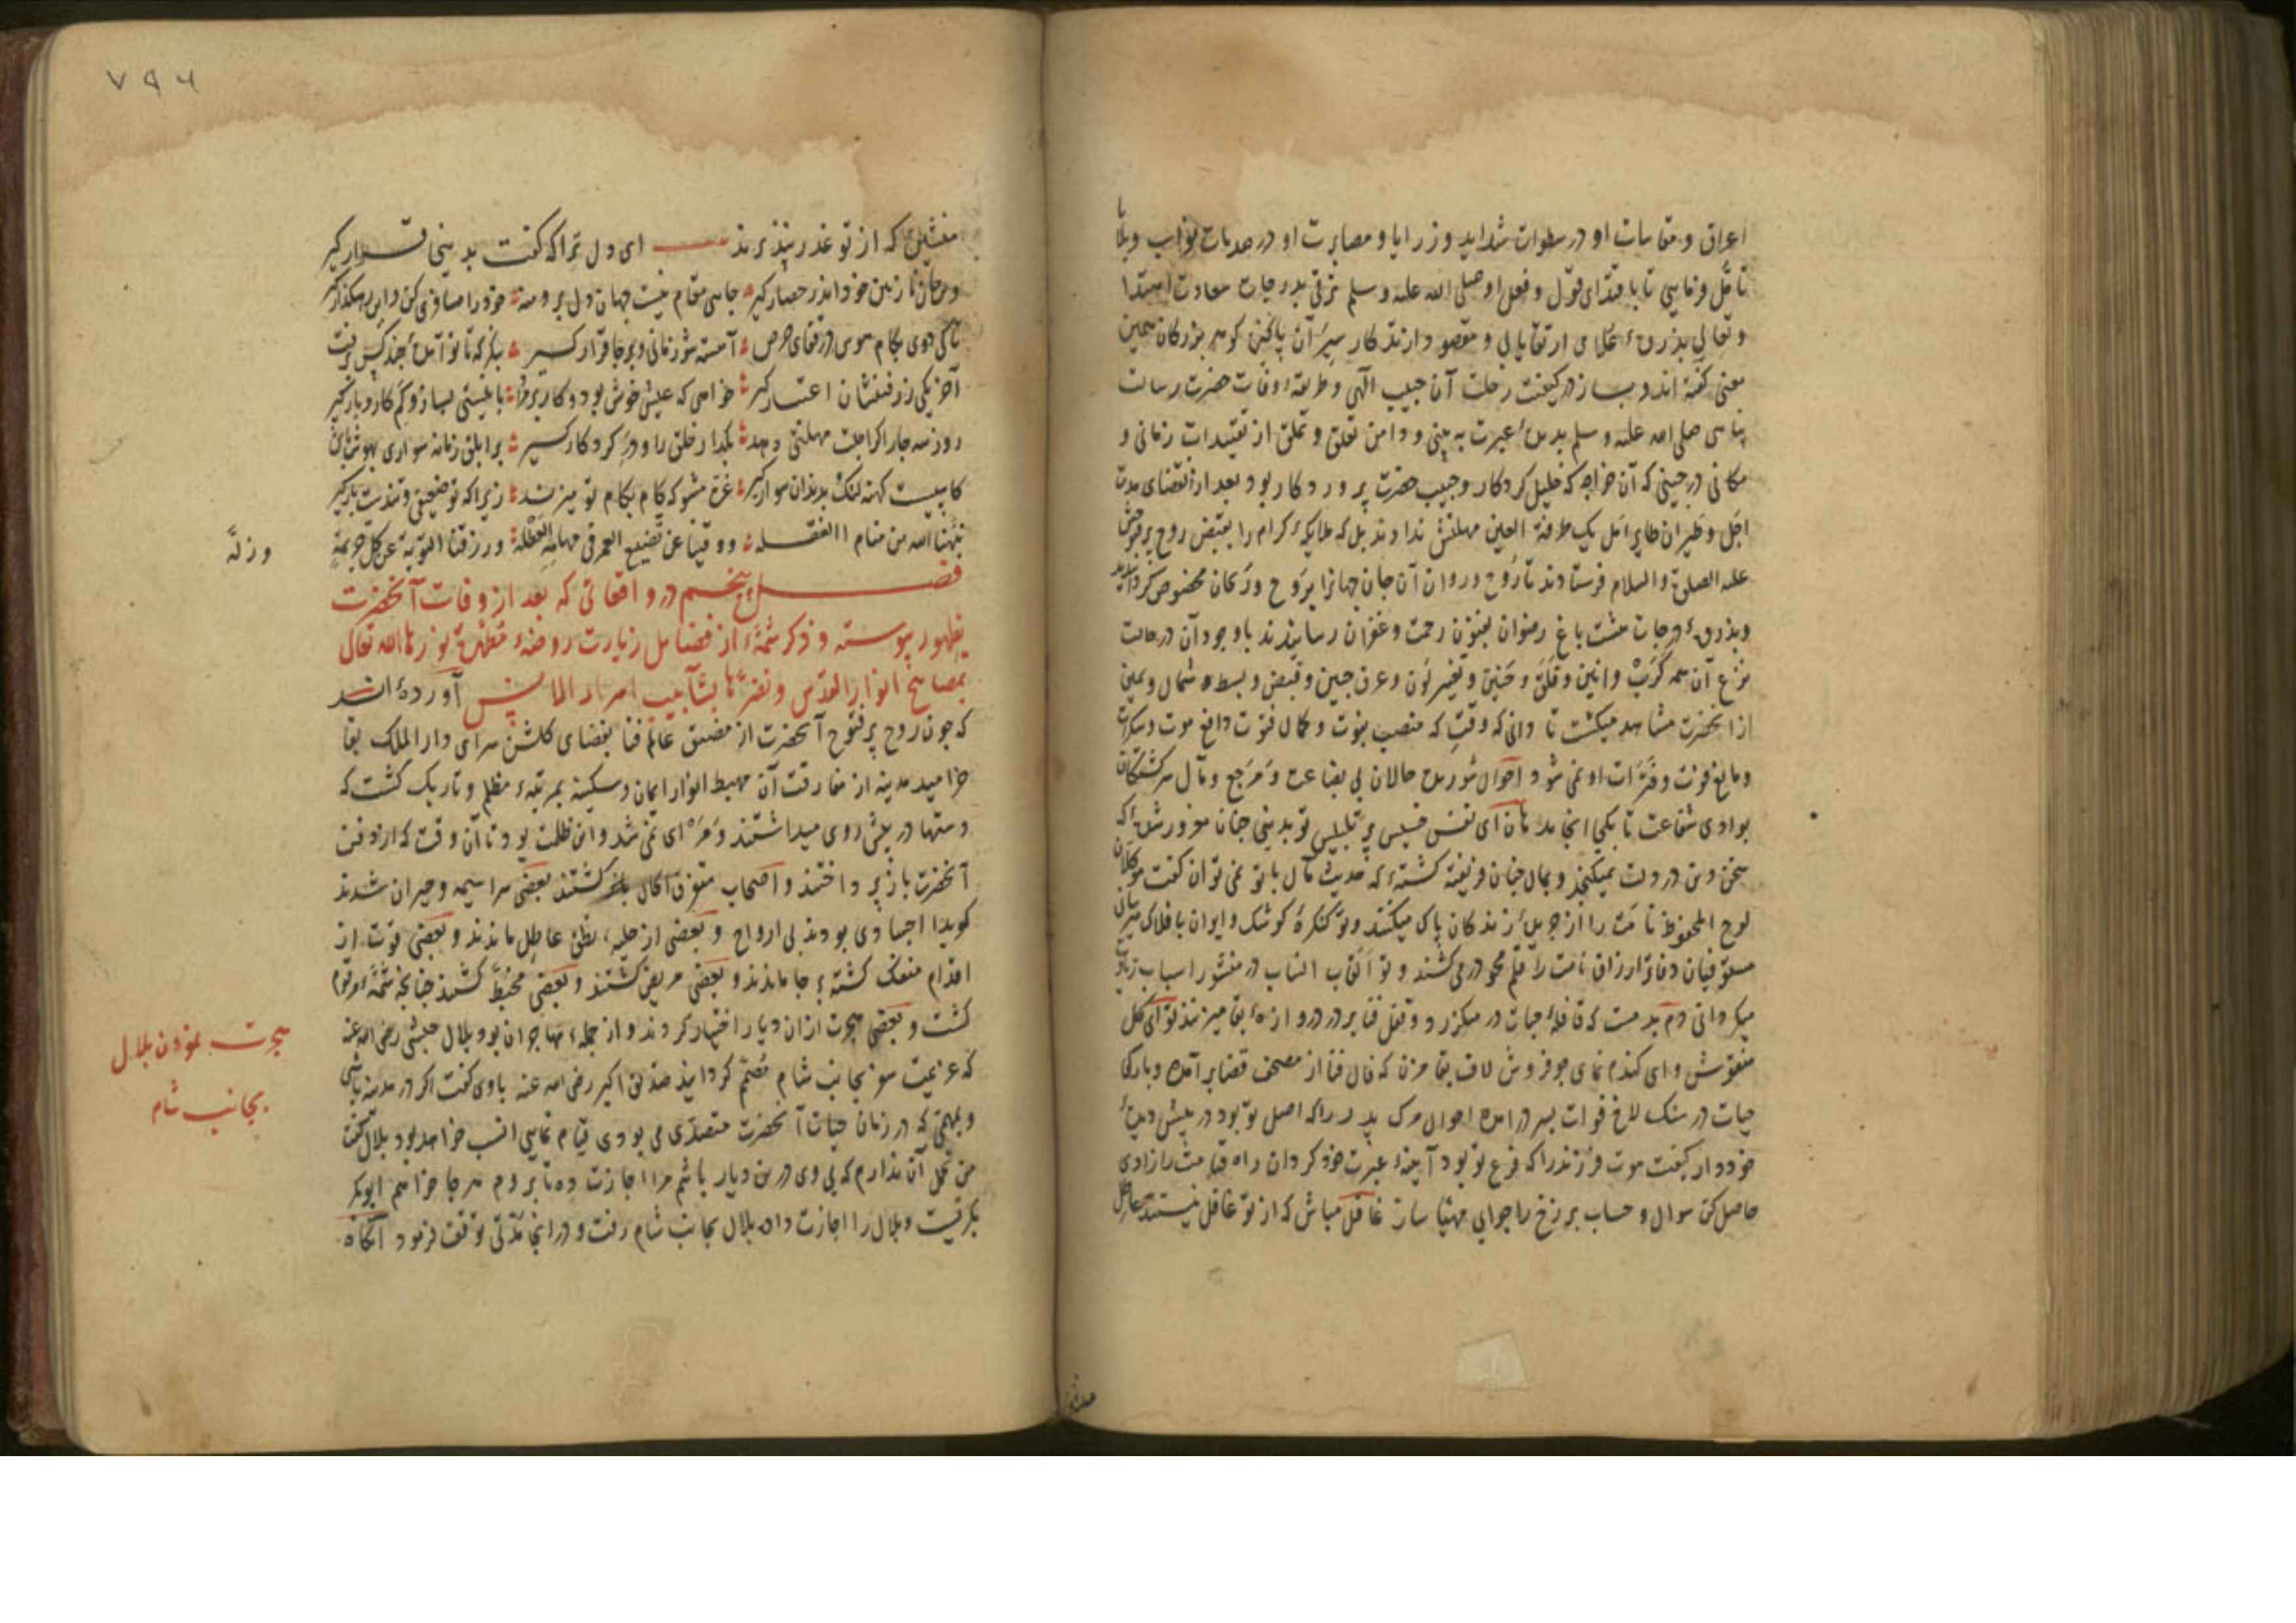 اعراق و مقاسات او در سطوات شداید و رزایا و مصابرت او در صدمات نوایب و بلایا
تأمل فرمایی تا باقتدای قول و فعل او صلی الله علیه وسلم ترقی بدرجات سعادت ابتدا
و تعالی بذروهٔ علای ارتقا یابی و مقصود ازتذکار سیر آن پاکیزه گوهر بزرگان همین
معنی گفته اند و بساز در کیفیت رحلت آن حبیب الهی و طریقهٔ وفات حضرت رسالت
پناهی صلی الله علیه وسلم بدیدهٔ عبرت به بینی و دامن تعلق و تملق از تقییدات زمانی و
مکانی درچینی که آن خواجه که خلیل کردکار و حبیب حضرت پروردکار بود بعد از انقضای مدت
اجل و طیران طایر امل یک طرفة العین مهلتش ندادند بل که ملایکهٔ کرام را بقبض روح پرفتوحش
علیه الصلوة والسلام فرستادند تا روح و روان آن جان جهانرا بروح و ریحان مخصوص کردانیدند
وبذروهٔ درجات هشت باغ رضوان بفنون رحمت و غفران رسانیدند باوجود آن در حالت
نزع آن همه کرب و انین و قلق و حنین و تغییر لون و عرق جبین و قبض و بسط شمال و یمین
از آنحضرت مشاهده میکشت تا دانی که وقتی که منصب نبوت و کمال فتوت دافع موت و سکرات
و مانع فوت و فترات او نمی شود احوال شوریده حالان بی بضاعت و مرجع و مآل سرکشتکان
بوادی شفاعت تا بکی انجامد هان ای نفس خسیس پر تلبیس تو بدینی چنان مغرور شدهٔ که
سخن دین در دلت نمیکنجد و بمال چنان فریفته کشتهٔ که حدیث مآل با تو نمی توان کفت موکلان
لوح المحفوظ نامت را از جریدهٔ زندکان پاک میکنند و تو کنکرهٔ کوشک و ایوان بافلاک میرسانی
مستوفیان دفاتر ارزاق نامت را قلم محو در می کشند و تو القاب انساب در منشور اسباب زیاده
میکردانی دم بدمت که قافلهٔ حیات در میکزرد و قفل فنا بر در دروازهٔ بقا میزنند تو ای کل
مغفوش و ای کندم نمای جو فروش لاف بقا مزن که فال فنا از مصحف قضا برآمده و بارکی
حیات در سنک لاخ فوات بسر درآمده احوال مرک پدر را که اصل تو بود در پیش دیدهٔ
خود دار کیفیت موت فرزند را که فرع تو بود آیینهٔ عبرت خود کردان راه قیامت را زادی
حاصل کن سوال و حساب برزخ را جوابی مهیا ساز غافل مباش که از تو غافل نیستند عاطل
۷۹۶
منشین که از تو عذر نپذیرند ای دل ترا که کفت بدینی قرار کیر
و جان نازنین خود اندر حصار کیر جای مقام نیست جهان دل برو منه خود را مسافری کن و این رهکذار کیر
تاکی دوی بکام هوس در قفای حرص آهسته شو زمانی و برجا قرار کیر بنکر که تا تو آمدهٔ چند کس برفت
آخر یکی ز رفتنشان اعتبار کیر خواهی که عیش خوش بود و کار برمراد با نیستی بساز و کم کار و بار کیر
روز سه چار اکر اجلت مهلتی دهد بکذار خلق را و در کردکار کیر بر ابلق زمانه سواری بهوش باش
کابیست کهنه لنک بدندان سوار کیر غره مشو که کام بکام تو میزند زیرا که تو ضعیفی و تندیست بارکیر
نبهنا الله من منام الغفله و وقینا عن تضییع العمر فی مهامه العطلة و رزقنا التوبة عن کل جریمة
و زلة
فصل پنجم در واقعاتی که بعد از وفات آنحضرت
بظهور پیوسته و ذکر شمهٔ از فضایل زیارت روضهٔ مطهرهٔ نورها الله تعالی
بمصابیح انوار القدس و نضرها بشآبیب امداد الانس آورده اند
که چون روح پرفتوح آنحضرت از مضیق عالم فنا بفضای کلشن سرای دار الملک بقا
خرامید مدینه از مفارقت آن مهبط انوار ایمان و سکینه بمرتبهٔ مظلم و تاریک کشت که
دستها در پیش روی میداشتند و مرءای نمی شد و این ظلمت بود تا آن وقت که از دفن
آنحضرت باز پرداختند و اصحاب متفرق الحال کشتند بعضی سراسیمه و حیران شدند
کوییا اجسادی بودند بی ارواح و بعضی از حلیهٔ نطق عاطل ماندند و بعضی قوت از
اقدام منفک کشته بر جا ماندند و بعضی مریض کشتند و بعضی مخبط کشتند چنانچه شمهٔ مرقوم
کشت و بعضی هجرت ازان دیار اختیار کردند و از جملهٔ مهاجران بود بلال حبشی رضی الله عنه
که عزیمت سفر بجانب شام مصمم کردانید صدیق اکبر رضی الله عنه باوی کفت اکر در مدینه باشی
و بمهمی که در زمان حیات آنحضرت متصدی می بودی قیام نمایی انسب خواهد بود بلال کفت
من تحمل آن ندارم که بی وی درین دیار باشم مرا اجازت ده تا بروم هر جا خواهم ابوبکر
بکریست و بلال را اجازت داد بلال بجانب شام رفت و در آنجا مدتی توقف فرمود آنکاه
هجرت نمودن بلال
بجانب شام